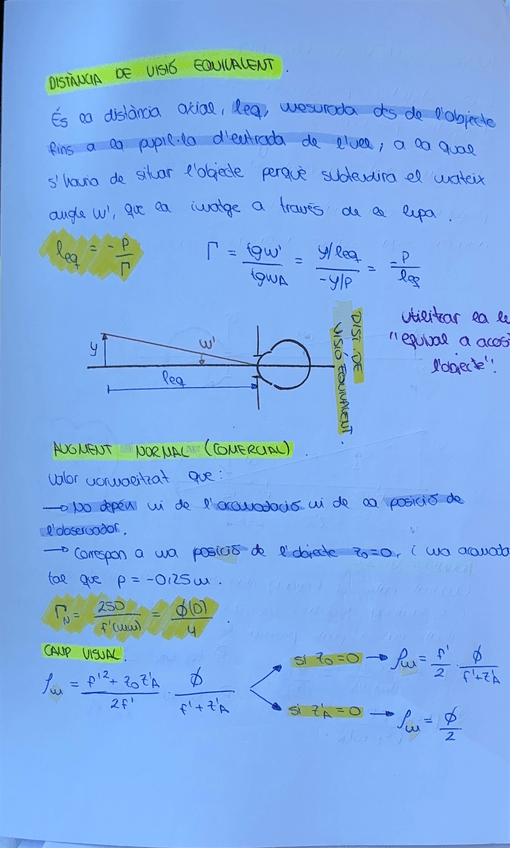 DISTÀNCIA DE VISIÓ EQUIVALENT.
És la distància axial, leq, mesurada des de l'objecte
fins a la pupil·la d'entrada de l'ull, a la qual
s'hauria de situar l'objecte perquè subtendira el mateix
angle w', que la imatge a través de la lupa.
leq = -P/Γ Γ = tgw'/tgwA = y/leq / -y/P = -P/leq
Utilitzar la
"equival a
l'objecte".
y w'
leq
DIST. DE
VISIÓ EQUIVALENT.
AUGMENT NORMAL (COMERCIAL)
Valor normalitzat que:
→ No depén ni de l'acomodació ni de la posició de
l'observador.
→ Correspon a una posició de l'objecte z0=0, i una
tal que P = -0,25m.
ΓN = 250/f'(mm) = ϕ(D)/4.
CAMP VISUAL.
ρm = f'² + z0z'A / 2f' · ϕ / f'+z'A
si z0=0 → ρm = f'/2 · ϕ/f'+z'A
si z'A=0 → ρm = ϕ/2